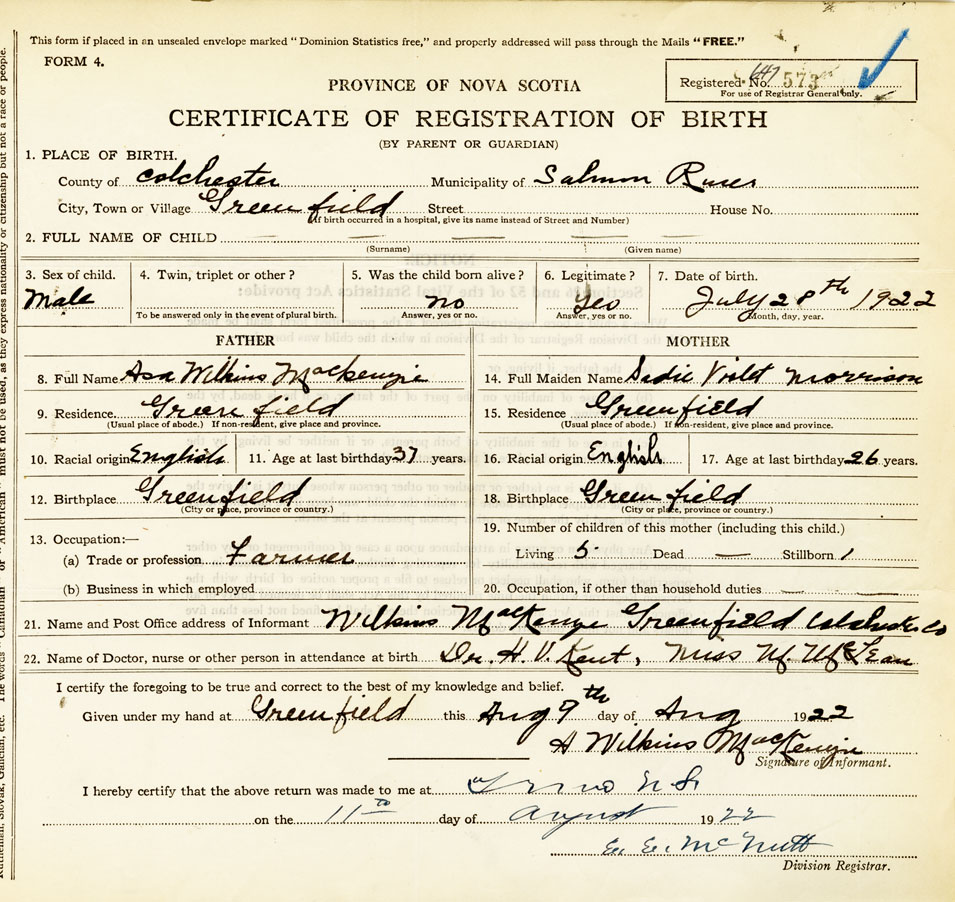 This form if placed in an unsealed envelope marked "Dominion Statistics free," and properly addressed will pass through the Mails "FREE."
FORM 4.
Registered No. 647 573
For use of Registrar General only.
PROVINCE OF NOVA SCOTIA
CERTIFICATE OF REGISTRATION OF BIRTH
(BY PARENT OR GUARDIAN)
1. PLACE OF BIRTH.
County of Colchester Municipality of Salmon River
City, Town or Village Greenfield Street House No.
(If birth occurred in a hospital, give its name instead of Street and Number)
2. FULL NAME OF CHILD
(Surname) (Given name)
3. Sex of child. 4. Twin, triplet or other? 5. Was the child born alive? 6. Legitimate? 7. Date of birth.
Male no Yes July 28th 1922
To be answered only in the event of plural birth. Answer, yes or no. Answer, yes or no. Month, day, year.
FATHER MOTHER
8. Full Name Asa Wilkins MacKenzie 14. Full Maiden Name Sadie Violet Morrison
9. Residence. Greenfield 15. Residence Greenfield
(Usual place of abode.) If non-resident, give place and province. (Usual place of abode.) If non-resident, give place and province.
10. Racial origin English 11. Age at last birthday 37 years. 16. Racial origin English 17. Age at last birthday 26 years.
12. Birthplace Greenfield 18. Birthplace Greenfield
(City or place, province or country.) (City or place, province or country.)
13. Occupation:— 19. Number of children of this mother (including this child.)
(a) Trade or profession Farmer Living 5 Dead — Stillborn 1
(b) Business in which employed 20. Occupation, if other than household duties
21. Name and Post Office address of Informant Wilkins MacKenzie Greenfield Colchester Co
22. Name of Doctor, nurse or other person in attendance at birth Dr. H. V. Kent, Miss M. McLean
I certify the foregoing to be true and correct to the best of my knowledge and belief.
Given under my hand at Greenfield this Aug 9th day of Aug 1922
A Wilkins MacKenzie
Signature of Informant.
I hereby certify that the above return was made to me at Truro N.S.
on the 11th day of August 1922
E. E. McNutt
Division Registrar.